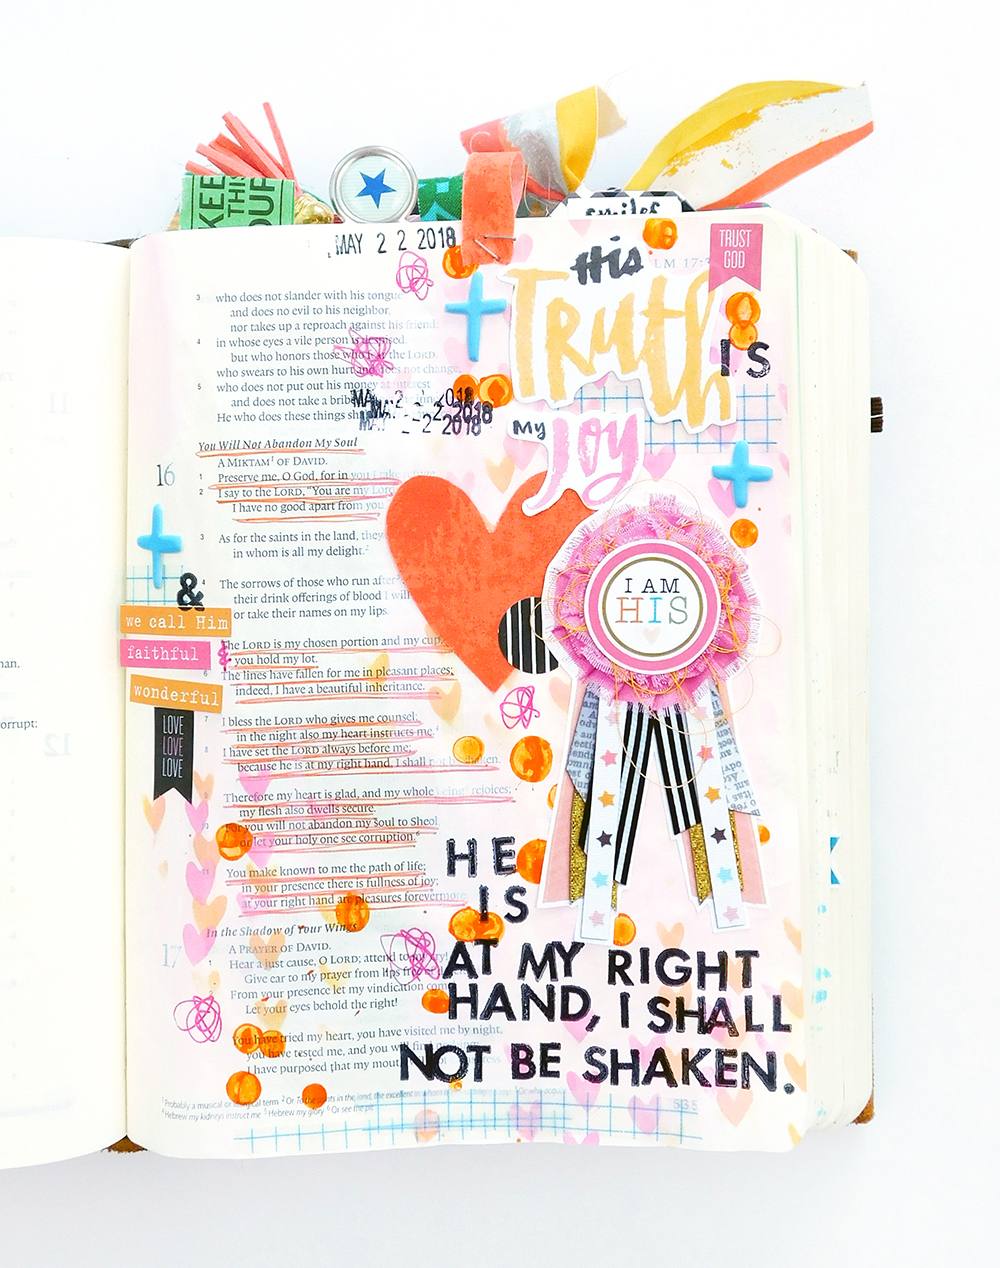 KEE
THIS
OUP
smiles
MAY 2 2 2018
His
LM 17:
TRUST
GOD
Truth
IS
My
Joy
3 who does not slander with his tongue
and does no evil to his neighbor,
nor takes up a reproach against his friend;
4 in whose eyes a vile person is despised,
but who honors those who fear the LORD,
who swears to his own hurt and does not change,
5 who does not put out his money at interest
and does not take a bribe
He who does these things
2018
2 2018
2 2018
You Will Not Abandon My Soul
16
A MIKTAM¹ OF DAVID.
1 Preserve me, O God, for in you I take refuge.
2 I say to the LORD, "You are my Lord
I have no good apart from you
3 As for the saints in the land, they
in whom is all my delight.²
4 The sorrows of those who run after
their drink offerings of blood I will
or take their names on my lips.
&
we call Him
faithful
&
wonderful
LOVE
LOVE
LOVE
The LORD is my chosen portion and my cup;
you hold my lot.
6 The lines have fallen for me in pleasant places;
indeed, I have a beautiful inheritance.
7 I bless the LORD who gives me counsel;
in the night also my heart instructs me.⁴
8 I have set the LORD always before me;
because he is at my right hand, I shall not be shaken.
9 Therefore my heart is glad, and my whole being rejoices;
my flesh also dwells secure.
For you will not abandon my soul to Sheol,
or let your holy one see corruption.⁶
11 You make known to me the path of life;
in your presence there is fullness of joy;
at your right hand are pleasures forevermore.
I AM
HIS
In the Shadow of Your Wings
17
A PRAYER OF DAVID.
1 Hear a just cause, O LORD; attend to my cry!
Give ear to my prayer from lips free of
From your presence let my vindication com
Let your eyes behold the right!
You have tried my heart, you have visited me by night,
you have tested me, and you will find
I have purposed that my mout
HE
IS
AT MY RIGHT
HAND, I SHALL
NOT BE SHAKEN.
¹ Probably a musical or liturgical term ² Or To the saints in the land, the excellent in whom
⁴ Hebrew my kidneys instruct me ⁵ Hebrew my glory ⁶ Or see the pit
535
man.
corrupt;
11
12